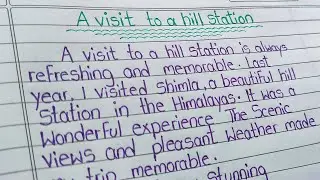 A visit to a hill station
A visit to a hill station is always
refreshing and memorable. Last
year, I visited shimla, a beautiful hill
Station in the Himalayas. It was a
Wonderful experience The Scenic
views and pleasant weather made
trip memorable.
stunning